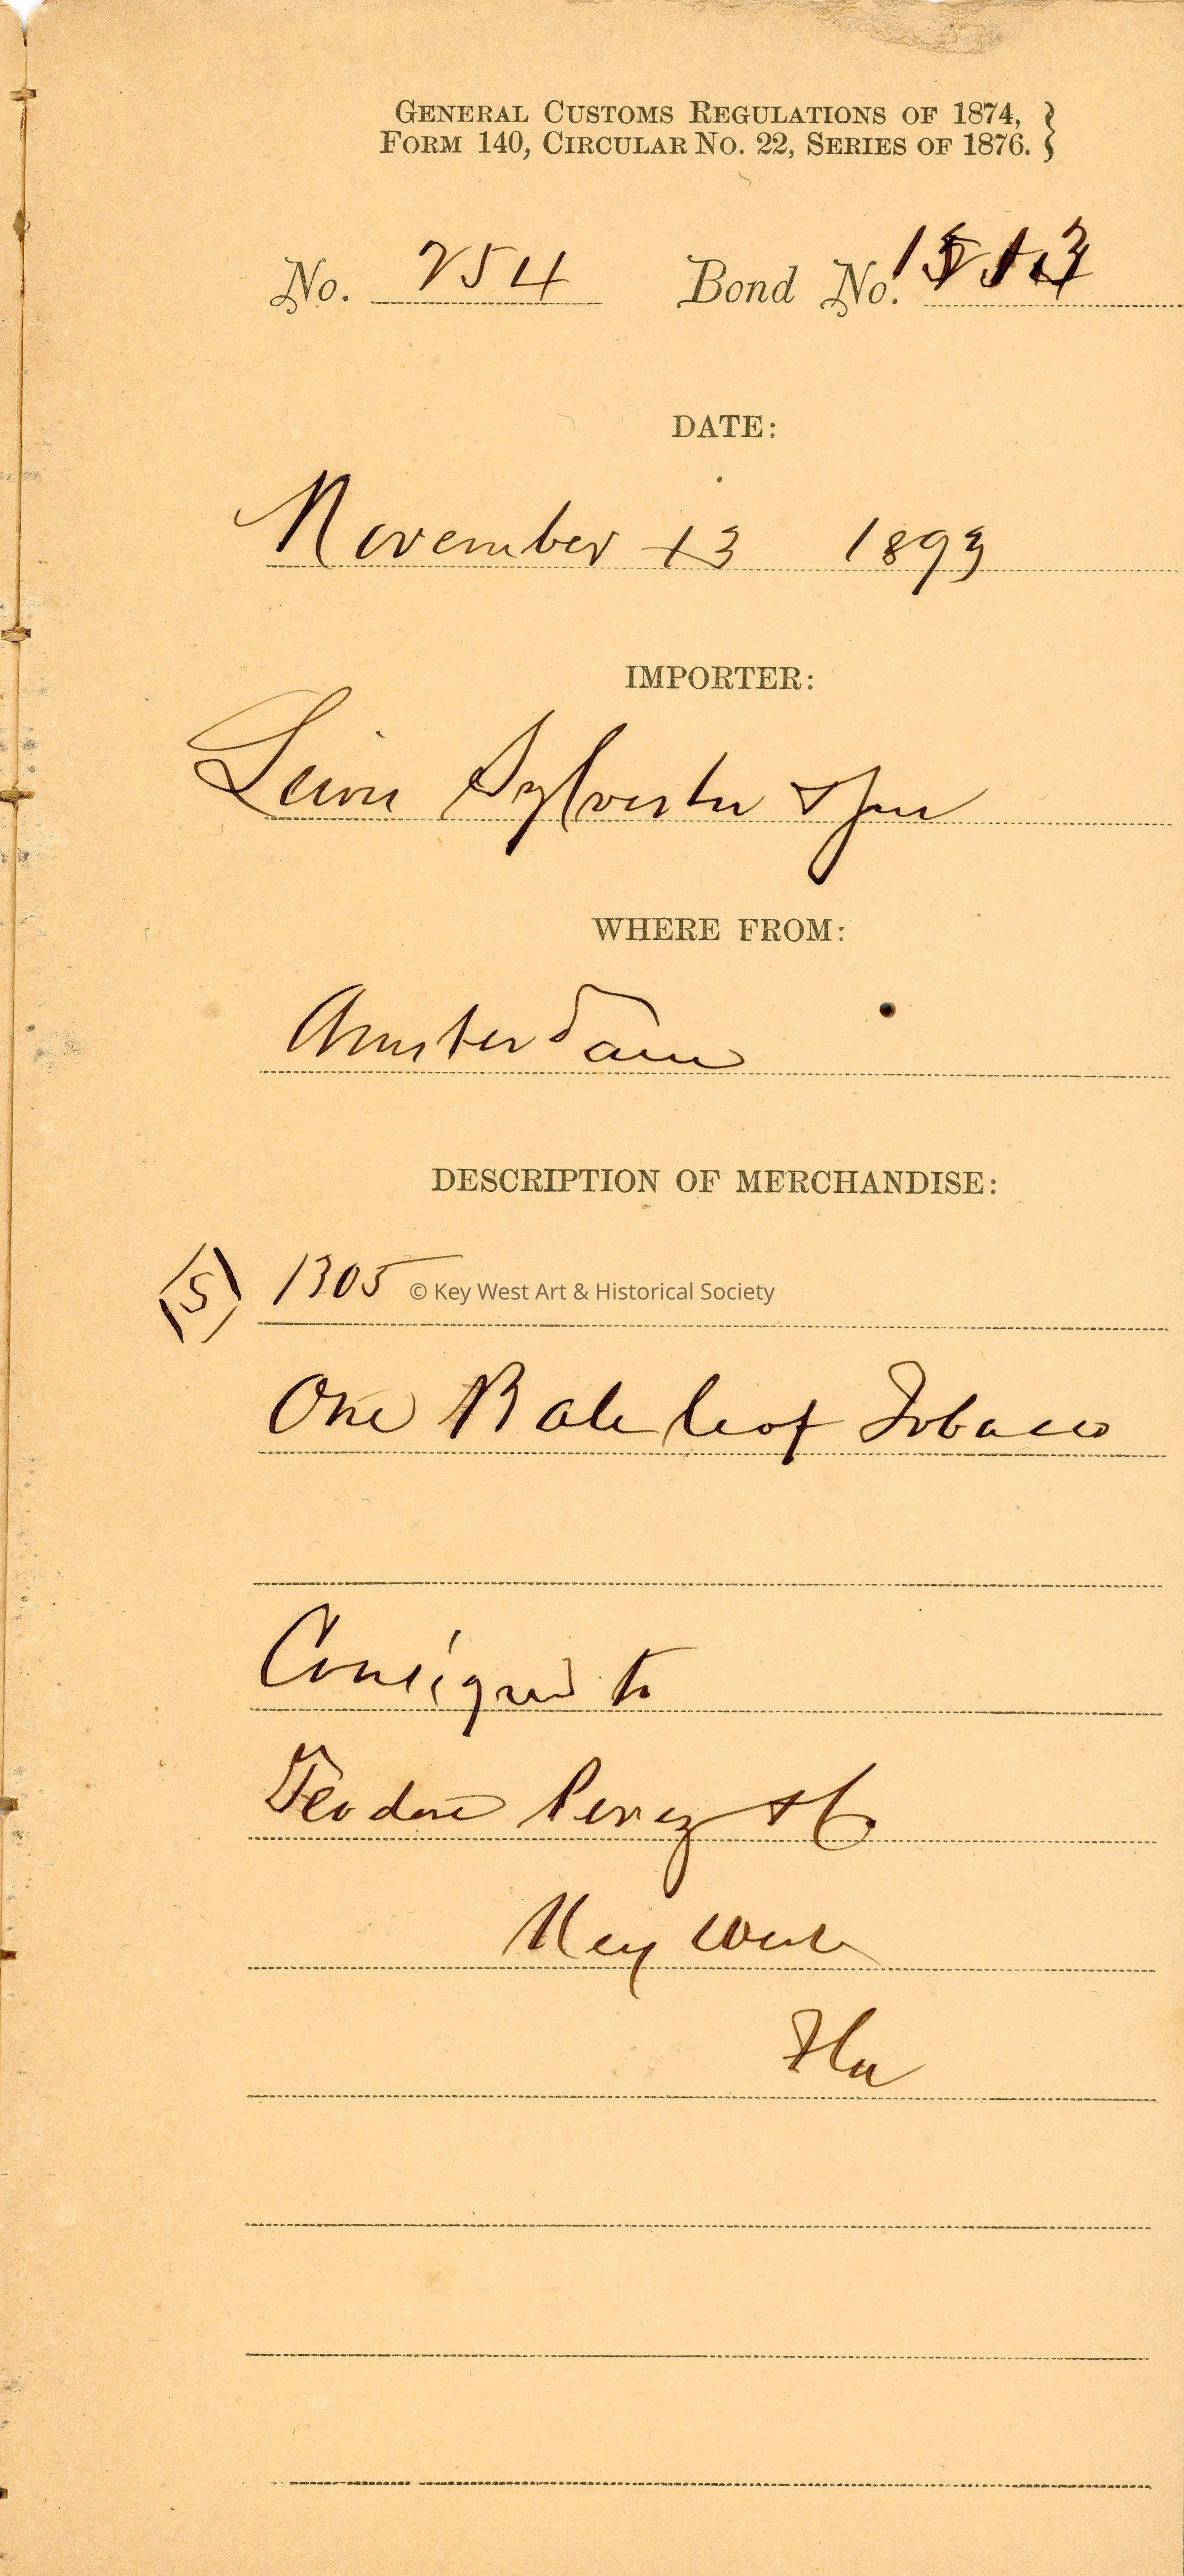 GENERAL CUSTOMS REGULATIONS OF 1874,
FORM 140, CIRCULAR NO. 22, SERIES OF 1876. }
No. 254 Bond No.
DATE:
November 13 1893
IMPORTER:
Sylvester &
WHERE FROM:
Amsterdam
DESCRIPTION OF MERCHANDISE:
S 1305
© Key West Art & Historical Society
One Bale leaf Tobacco
Consigned to
Teodoro Perez & Co
Key West
Fla